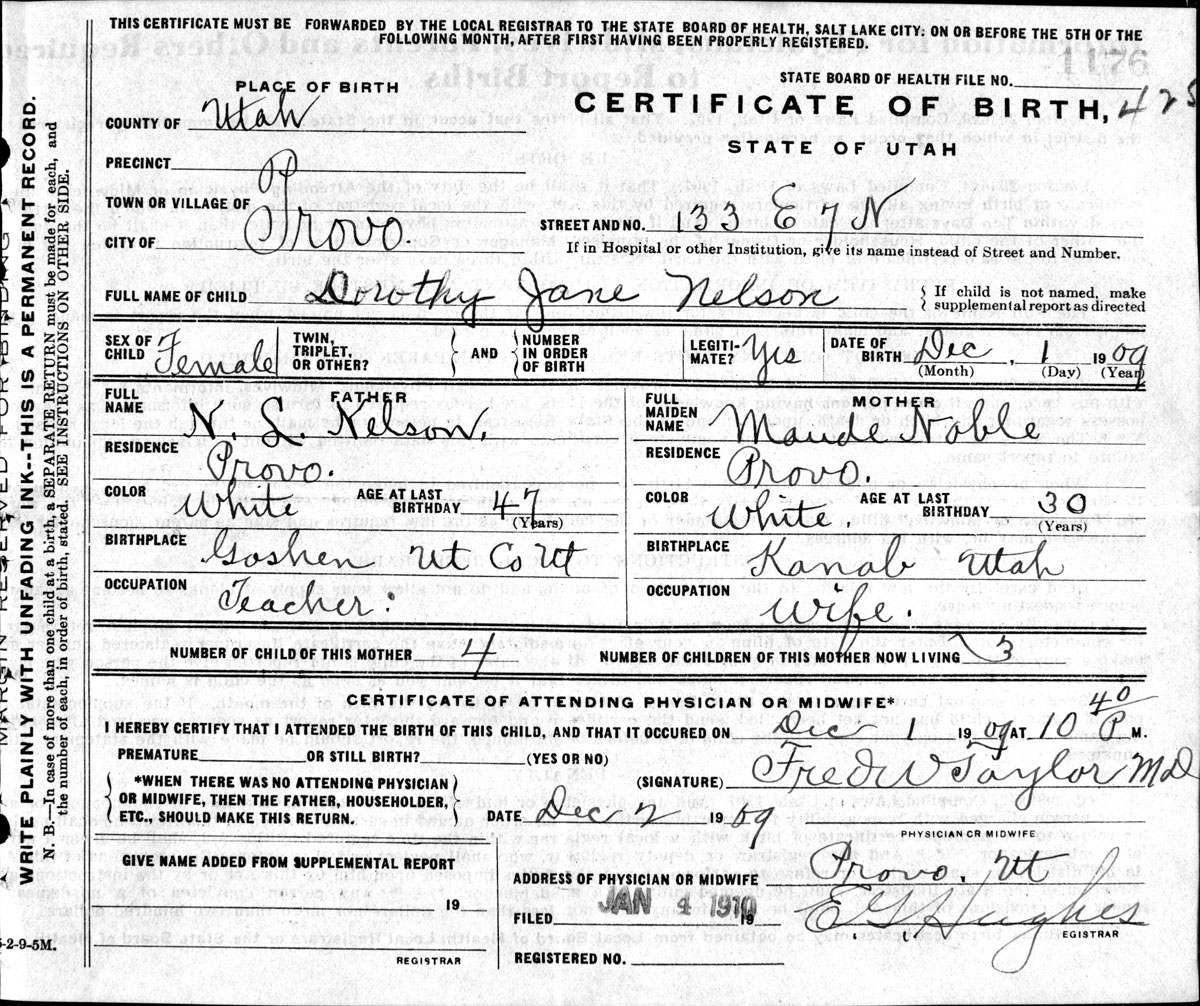 THIS CERTIFICATE MUST BE FORWARDED BY THE LOCAL REGISTRAR TO THE STATE BOARD OF HEALTH, SALT LAKE CITY; ON OR BEFORE THE 5TH OF THE
FOLLOWING MONTH, AFTER FIRST HAVING BEEN PROPERLY REGISTERED.
STATE BOARD OF HEALTH FILE NO.
PLACE OF BIRTH
CERTIFICATE OF BIRTH, 425
STATE OF UTAH
COUNTY OF Utah
PRECINCT
TOWN OR VILLAGE OF
CITY OF Provo
STREET AND NO. 133 E 7 N
If in Hospital or other Institution, give its name instead of Street and Number.
FULL NAME OF CHILD Dorothy Jane Nelson
{ If child is not named, make
supplemental report as directed
SEX OF CHILD Female
TWIN, TRIPLET, OR OTHER? } AND { NUMBER IN ORDER OF BIRTH
LEGITI-MATE? Yis
DATE OF BIRTH Dec, 1 1909
(Month) (Day) (Year)
FATHER
FULL NAME N. L. Nelson.
RESIDENCE Provo.
COLOR White
AGE AT LAST BIRTHDAY 47
(Years)
BIRTHPLACE Goshen Ut Co Ut
OCCUPATION Teacher.
MOTHER
FULL MAIDEN NAME Maude Noble
RESIDENCE Provo.
COLOR White.
AGE AT LAST BIRTHDAY 30
(Years)
BIRTHPLACE Kanab Utah
OCCUPATION Wife.
NUMBER OF CHILD OF THIS MOTHER 4
NUMBER OF CHILDREN OF THIS MOTHER NOW LIVING 3
CERTIFICATE OF ATTENDING PHYSICIAN OR MIDWIFE*
I HEREBY CERTIFY THAT I ATTENDED THE BIRTH OF THIS CHILD, AND THAT IT OCCURED ON Dec 1 1909 AT 10 40 P. M.
PREMATURE OR STILL BIRTH? (YES OR NO)
(SIGNATURE) Fred W Taylor Md
{ *WHEN THERE WAS NO ATTENDING PHYSICIAN
OR MIDWIFE, THEN THE FATHER, HOUSEHOLDER,
ETC., SHOULD MAKE THIS RETURN. }
DATE Dec 2 1909
PHYSICIAN OR MIDWIFE
GIVE NAME ADDED FROM SUPPLEMENTAL REPORT
19
REGISTRAR
ADDRESS OF PHYSICIAN OR MIDWIFE Provo Ut
FILED JAN 4 1910 19
E L Hughes
REGISTRAR
REGISTERED NO.
MARGIN RESERVED FOR BINDING
WRITE PLAINLY WITH UNFADING INK--THIS IS A PERMANENT RECORD.
N. B.—In case of more than one child at a birth, a SEPARATE RETURN must be made for each, and
the number of each, in order of birth, stated. SEE INSTRUCTIONS ON OTHER SIDE.
5-2-9-5M.